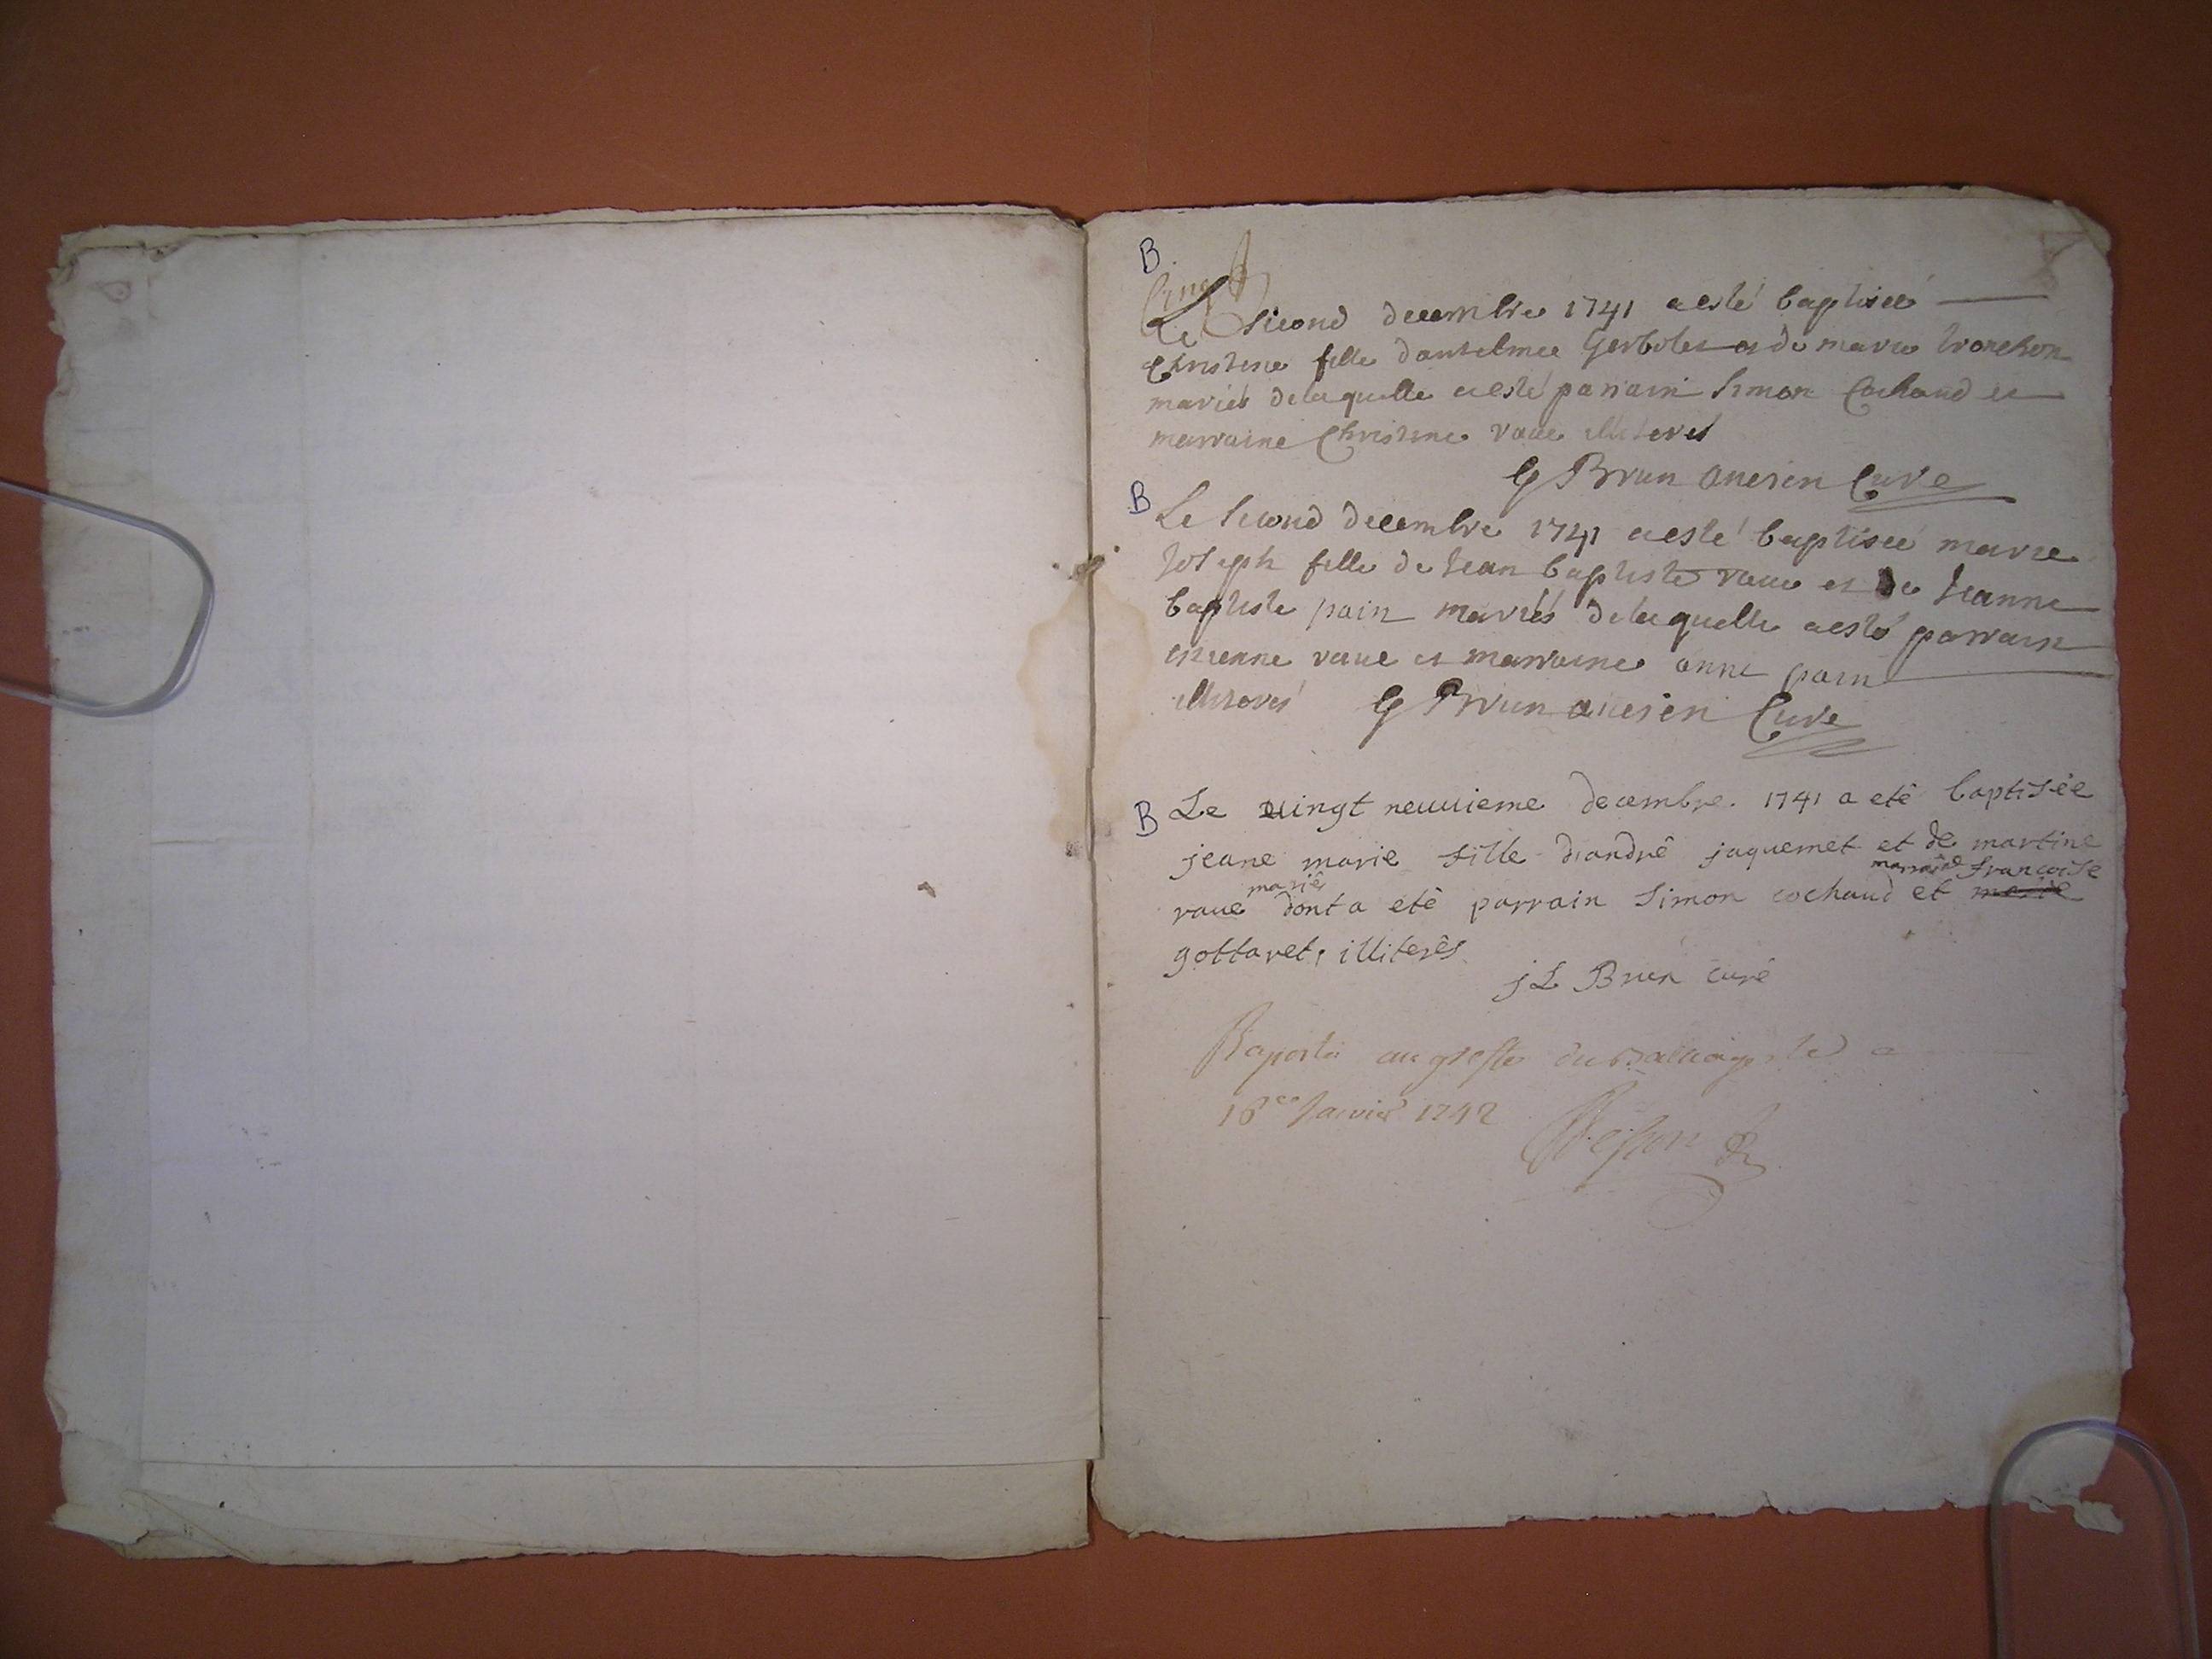 B
Cinq
Le second decembre 1741 a esté baptiseé
Christine fille dantelmee Gerbolet et de marie tronchon
mariés delaquelle a esté parrain Simon Cochaud et
marraine Christine vaue illiterés
G Brun ancien Curé
B Le second decembre 1741 a esté baptiseé marie
Joseph fille de Jean baptiste vaue et de Jeanne
baptiste pain mariés delaquelle a esté parrain
etienne vaue et marraine anne pain
illiterés G Brun ancien Curé
B Le vingt neuuieme decembre 1741 a eté baptisée
jeane marie fille d'andré jaquemet et de martine
mariés marraine francoise
vaue dont a eté parrain simon cochaud et marie
gottaret, illiterés
j L Brun curé
Raporté au greffe du Balliage le
16e Janvier 1742